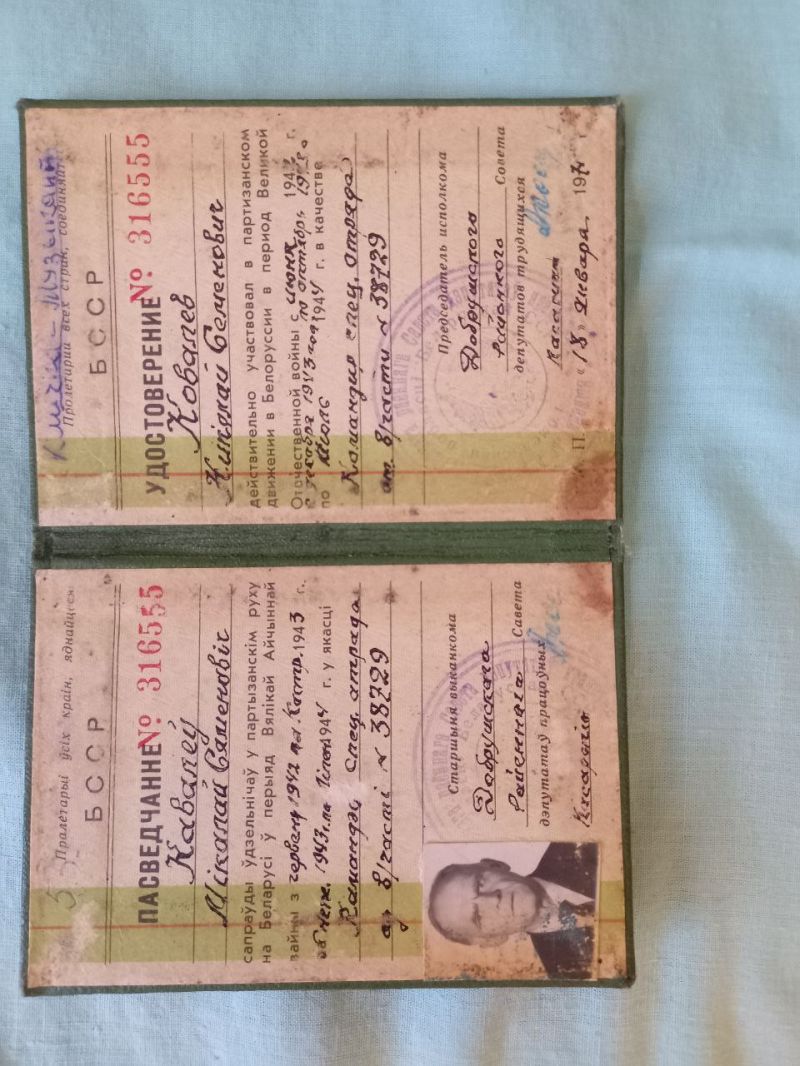 Пралетарыі ўсіх краін, яднайцеся
БССР
ПАСВЕДЧАННЕ № 316555
Кавалеў
Мікалай Сяменовіч
сапраўды ўдзельнічаў у партызанскім руху
на Беларусі ў перыяд Вялікай Айчыннай
вайны з 1942 па 1943 г.
1943 г. па 1944 г. у якасці
спец. отрада
в/часті № 38729
Старшыня выканкома
Добрушскага
Савета
дэпутатаў працоўных
Пролетарии всех стран, соединяйтесь
БССР
УДОСТОВЕРЕНИЕ № 316555
Ковалев
Николай Семенович
действительно участвовал в партизанском
движении в Белоруссии в период Великой
Отечественной войны с июня 194 г.
по октябрь
с декабря 1943 года
по июль 1944 г. в качестве
Командир спец. отряда
в/части № 38729
Председатель исполкома
Добрушского
районного Совета
депутатов трудящихся
"18" января 197